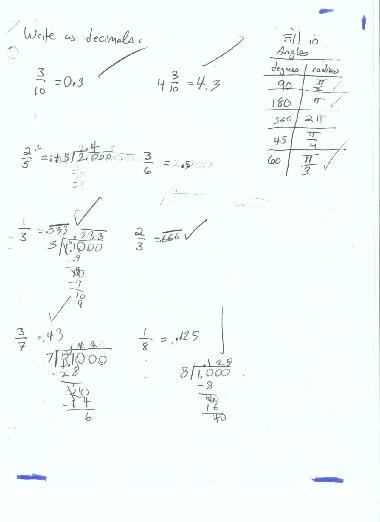 Write as decimals.
3/10 = 0.3
4 3/10 = 4.3
Fill in
Angles
degrees | radians
90 | π/2
180 | π
360 | 2π
45 | π/4
60 | π/3
2/5 =
2.000
3/6 =
1/3 = .333
.333
3 1.000
-9
10
-9
10
9
2/3 = .666
3/7 = .43
7 3.000
-28
6
1/8 = .125
.125
8 1.000
-8
16
40